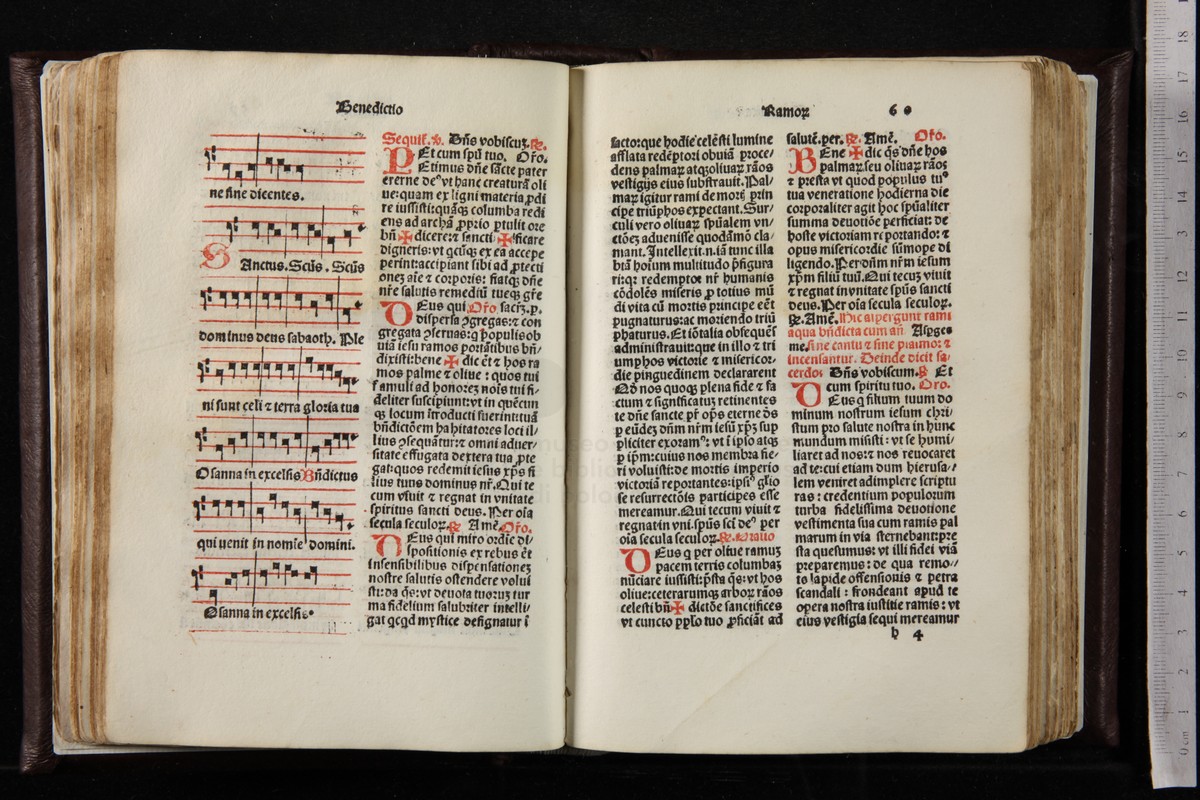 Benedictio
ne sine dicentes.
SAnctus. Scũs. Scũs
dominus deus sabaoth. Ple
ni sunt celi ⁊ terra gloria tua
Osanna in excelsis Bñdictus
qui uenit in nomie domini.
Osanna in excelsis.
Sequit̃. ℣. Dñs vobiscuꝫ. ℟.
Et cum spũ tuo. Oro.
PEtimus dñe sãcte pater
eterne deꝰ vt hanc creaturã oli
ue: quam ex ligni materia ꝓdi
re iussisti: quãqꝫ columba redi
ens ad archã ꝓprio ptulit ore
bñ ✠ dicere: ⁊ sancti ✠ ficare
digneris: vt qcũqꝫ ex ea accepe
perint: accipiant sibi ad ꝓtecti
oneꝫ aĩe ⁊ corporis: fiatqꝫ dñe
nr̃e salutis remediũ tueqꝫ gr̃e
DEus qui Oro sacr̃. p.
dispersa ꝯgregas: ⁊ con
gregata ꝯseruas: q populis ob
uiã iesu ramos portãtibus bñ/
dixisti: bene ✠ dic ẽt ⁊ hos ra
mos palme ⁊ oliue: quos tui
famuli ad honoreꝫ nois tui fi/
deliter suscipiunt: vt in quẽcun
qꝫ locum ĩtroducti fuerint: tuã
bñdictõem habitatores loci il/
lius ꝯsequãtur: ⁊ omni aduer/
sitate effugata dextera tua ꝓte
gat: quos redemit iesus xp̃s fi
lius tuus dominus nr̃. Qui te
cum viuit ⁊ regnat in vnitate
spiritus sancti deus. Per oĩa
secula seculoꝝ. ℟. Amẽ. Oro.
DEus qui miro ordie di/
spositionis ex rebus ẽt
insensibilibus dispensationeꝫ
nostre salutis ostendere volui
sti: da q̃s: vt deuota tuoruꝫ cor
da fidelium salubriter intelli/
gat qcqd mystice designatur ĩ
Ramoꝝ 60
facto: que hodie celẽsti lumine
afflata redẽptori obuiã proce/
dens palmaꝝ atqꝫ oliuaꝝ rãos
vestigijs eius substrauit. Pal/
maꝝ igitur rami de mortꝭ prin
cipe triũphos expectant. Sur/
culi vero oliuaꝝ spũalem vn/
ctõeꝫ aduenisse quodãmõ cla/
mant. Intellexit. n. iã tunc illa
btã hoĩum multitudo p̃figura
ri: qꝛ redemptor nr̃ humanis
cõdolẽs miseris ꝓ totius mũ
di vita cũ mortis principe eẽt
pugnaturus: ac moriendo triũ
phaturus. Et iõ talia obsequẽs
administrauit: que in illo ⁊ tri
umphos victorie ⁊ misericor/
die pinguedinem declararent
Qd nos quoqꝫ plena fide ⁊ fa
ctum ⁊ significatuꝫ retinentes
te dñe sancte pr̃ op̃s eterne ds̃
p eũdeꝫ dñm nr̃m iesũ xp̃ꝫ sup
pliciter exoramꝰ: vt ĩ ip̃o atqꝫ
ꝑ ip̃m: cuius nos membra fie/
ri voluisti: de mortis imperio
victoriã reportantes: ipsiꝰ gl̃io
se resurrectõis participes esse
mereamur. Qui tecum viuit ⁊
regnat in vni. spũs scĩ deꝰ per
oĩa secula seculoꝝ. ℟. Oratio
DEus q per oliue ramuꝫ
pacem terris columbaꝫ
nũciare iussisti: p̃sta q̃s: vt hos
oliue: ceterarumqꝫ arboꝝ rãos
celesti bñ ✠ dictõe sanctifices
vt cuncto pp̃lo tuo ꝓficiãt ad
salutẽ. per. ℟. Amẽ. Oro.
BEne ✠ dic q̃s dñe hos
palmaꝝ seu oliuaꝝ rãos
⁊ presta vt quod populus tuꝰ
tua veneratione hodierna die
corporaliter agit hoc spũaliter
summa deuotiõe perficiat: de
hoste victoriam reportando: ⁊
opus misericordie sũmope di
ligendo. Per dñm nr̃m iesum
xp̃m filiũ tuũ. Qui tecuꝫ viuit
⁊ regnat in vnitate spũs sancti
deus. Per oĩa secula seculoꝝ.
℟. Amẽ. Hic aspergunt rami
aqua bñdicta cum añ. Asperge
me. sine cantu ⁊ sine psalmo: ⁊
incensantur. Deinde dicit sa/
cerdos Dñs vobiscum. ℟. Et
cum spiritu tuo. Oro.
DEus q filium tuum do
minum nostrum iesum chri/
stum pro salute nostra in hunc
mundum misisti: vt se humi/
liaret ad nos: ⁊ nos reuocaret
ad te: cui etiam dum hierusa/
lem veniret adimplere scriptu
ras: credentium populorum
turba fidelissima deuotione
vestimenta sua cum ramis pal
marum in via sternebant: pre
sta quesumus: vt illi fidei viã
preparemus: de qua remo/
to lapide offensionis ⁊ petra
scandali: frondeant apud te
opera nostra iustitie ramis: vt
eius vestigia sequi mereamur
h 4